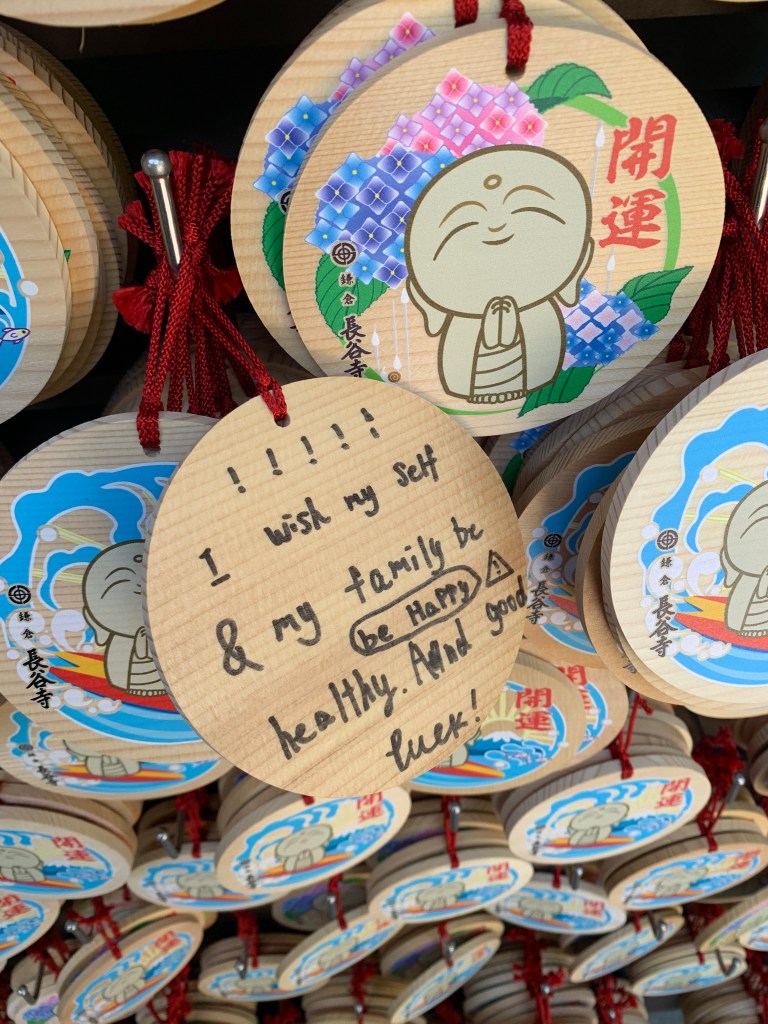 開運
鎌倉
長谷寺
! ! ! ! !
I wish my self
& my family be
be Happy
healthy. And good
luck!
鎌倉
長谷寺
鎌倉
長谷寺
鎌倉
長谷寺
開運
開運
開運
開運
開運
開運
開運
開運